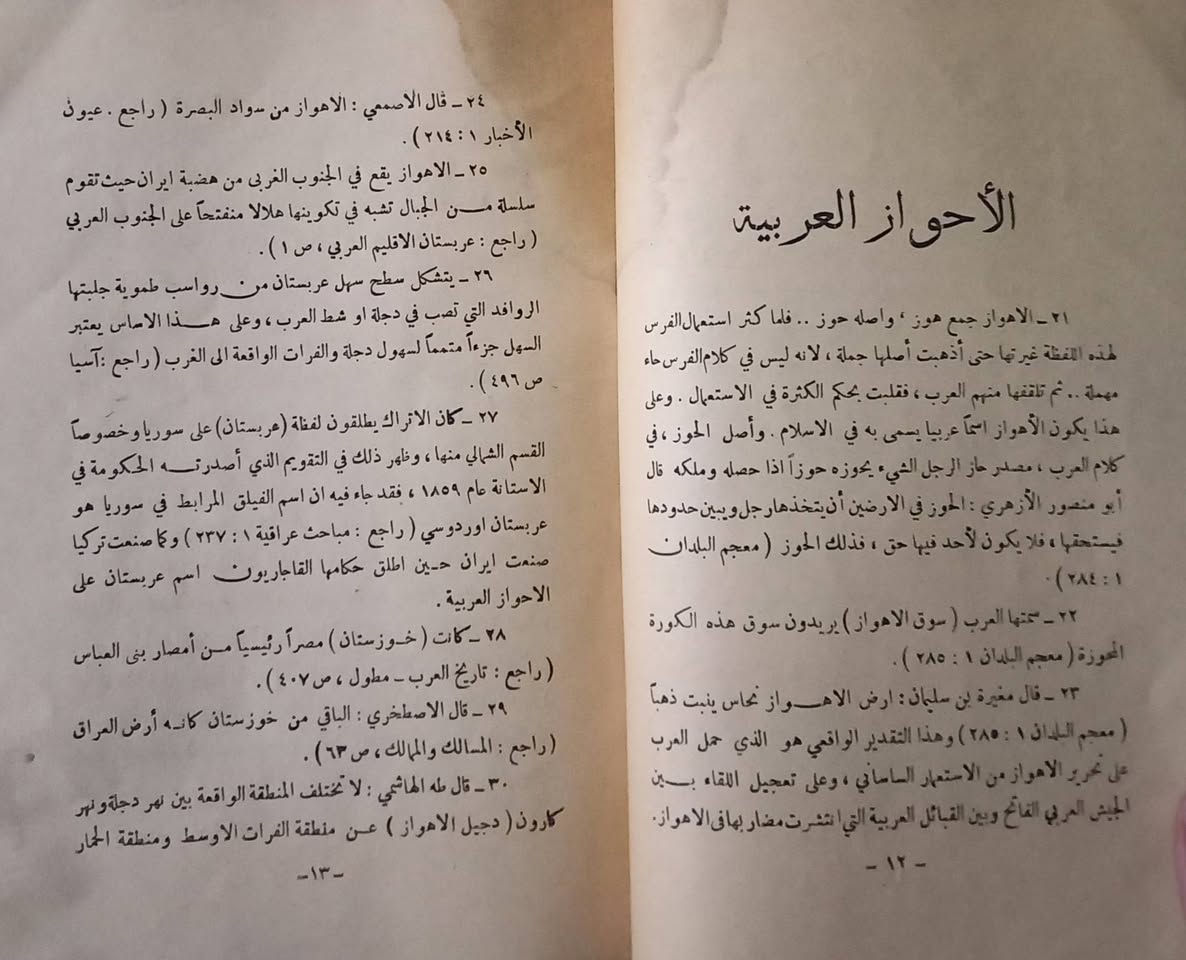 الأحواز العربية
٢١ ـ الاهواز جمع هوز ، واصله حوز .. فلما كثر استعمال الفرس
لهذه اللفظة غيرتها حتى أذهبت أصلها جملة ، لانه ليس في كلام الفرس حاء
مهملة .. ثم تلقفها منهم العرب ، فقلبت بحكم الكثرة في الاستعمال . وعلى
هذا يكون الأهواز اسماً عربيا يسمى به في الاسلام . وأصل الحوز ، في
كلام العرب ، مصدر حاز الرجل الشيء يحوزه حوزاً اذا حصله وملكه قال
أبو منصور الأزهري : الحوز في الارضين أن يتخذها رجل ويبين حدودها
فيستحقها ، فلا يكون لأحد فيها حق ، فذلك الحوز ( معجم البلدان
١ : ٢٨٤ ) .
٢٢ ـ سمتها العرب ( سوق الاهواز ) يريدون سوق هذه الكورة
المحوزة ( معجم البلدان ١ : ٢٨٥ ) .
٢٣ ـ قال مغيرة بن سليمان : ارض الاهواز نحاس ينبت ذهباً
( معجم البلدان ١ : ٢٨٥ ) وهذا التقدير الواقعي هو الذي حمل العرب
على تحرير الاهواز من الاستعمار الساساني ، وعلى تعجيل اللقاء بين
الجيش العربي الفاتح وبين القبائل العربية التي انتشرت مضاربها في الاهواز.
ـ ١٢ ـ
٢٤ ـ قال الاصمعي : الاهواز من سواد البصرة ( راجع . عيون
الأخبار ١ : ٢١٤ ) .
٢٥ ـ الاهواز يقع في الجنوب الغربى من هضبة ايران حيث تقوم
سلسلة من الجبال تشبه في تكوينها هلالا منفتحاً على الجنوب العربي
( راجع : عربستان الاقليم العربي ، ص ١ ) .
٢٦ ـ يتشكل سطح سهل عربستان من رواسب طموية جلبتها
الروافد التي تصب في دجلة او شط العرب ، وعلى هذا الاساس يعتبر
السهل جزءاً متمماً لسهول دجلة والفرات الواقعة الى الغرب ( راجع : آسيا
ص ٤٩٦ ) .
٢٧ ـ كان الاتراك يطلقون لفظة ( عربستان ) على سوريا وخصوصاً
القسم الشمالي منها ، وظهر ذلك في التقويم الذي أصدرته الحكومة في
الاستانة عام ١٨٥٩ ، فقد جاء فيه ان اسم الفيلق المرابط في سوريا هو
عربستان اوردوسي ( راجع : مباحث عراقية ١ : ٢٣٧ ) وكما صنعت تركيا
صنعت ايران حين اطلق حكامها القاجاريون اسم عربستان على
الاحواز العربية .
٢٨ ـ كانت ( خوزستان ) مصراً رئيسياً من أمصار بنى العباس
( راجع : تاريخ العرب ـ مطول ، ص ٤٠٧ ) .
٢٩ ـ قال الاصطخري : الباقي من خوزستان كانه أرض العراق
( راجع : المسالك والممالك ، ص ٦٣ ) .
٣٠ ـ قال طه الهاشمي : لا تختلف المنطقة الواقعة بين نهر دجلة ونهر
كارون ( دجيل الاهواز ) عن منطقة الفرات الاوسط ومنطقة الحمار
ـ ١٣ ـ